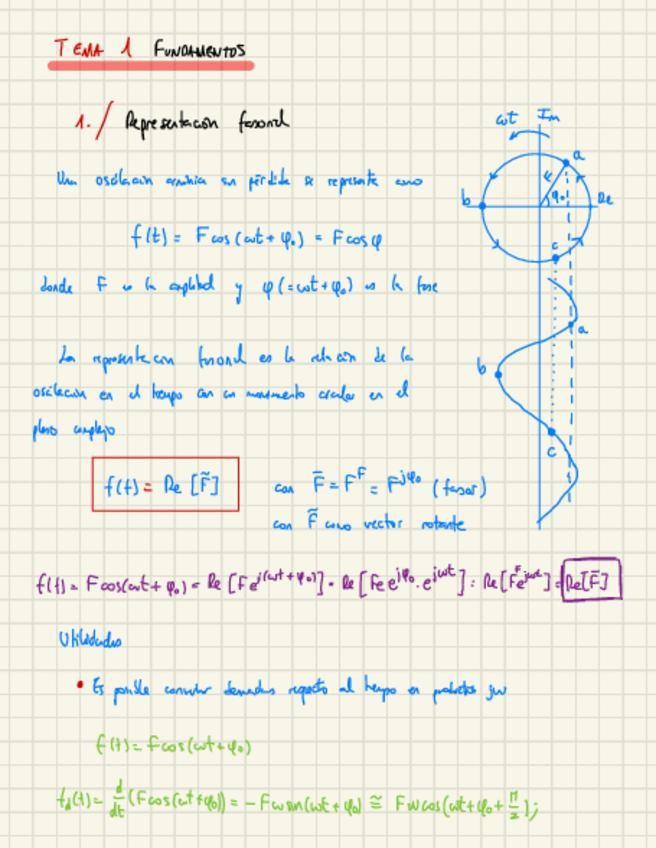 TEMA 1 FUNDAMENTOS
1./ Representación fasorial
Una oscilación armónica sin pérdida se representa como
f(t) = F cos(ωt + φ₀) = F cos φ
donde F es la amplitud y φ(=ωt+φ₀) es la fase
La representación fasorial es la relación de la
oscilación en el tiempo con un movimiento circular en el
plano complejo
f(t) = Re [F̃]
con F̄ = F^F = F^jφ₀ (fasor)
con F̃ como vector rotante
f(t) = F cos(ωt + φ₀) = Re [Fe^j(ωt + φ₀)] = Re [Fe e^jφ₀ . e^jωt] = Re [F^F e^jωt] = Re[F̄]
Utilidades
• Es posible convertir derivadas respecto al tiempo en productos jω
f(t) = F cos(ωt + φ₀)
f_d(t) = d/dt (F cos(ωt + φ₀)) = -Fω sen(ωt + φ₀) ≅ Fω cos(ωt + φ₀ + π/2);
ωt
Im
a
F
φ₀
b
Re
c
a
b
c